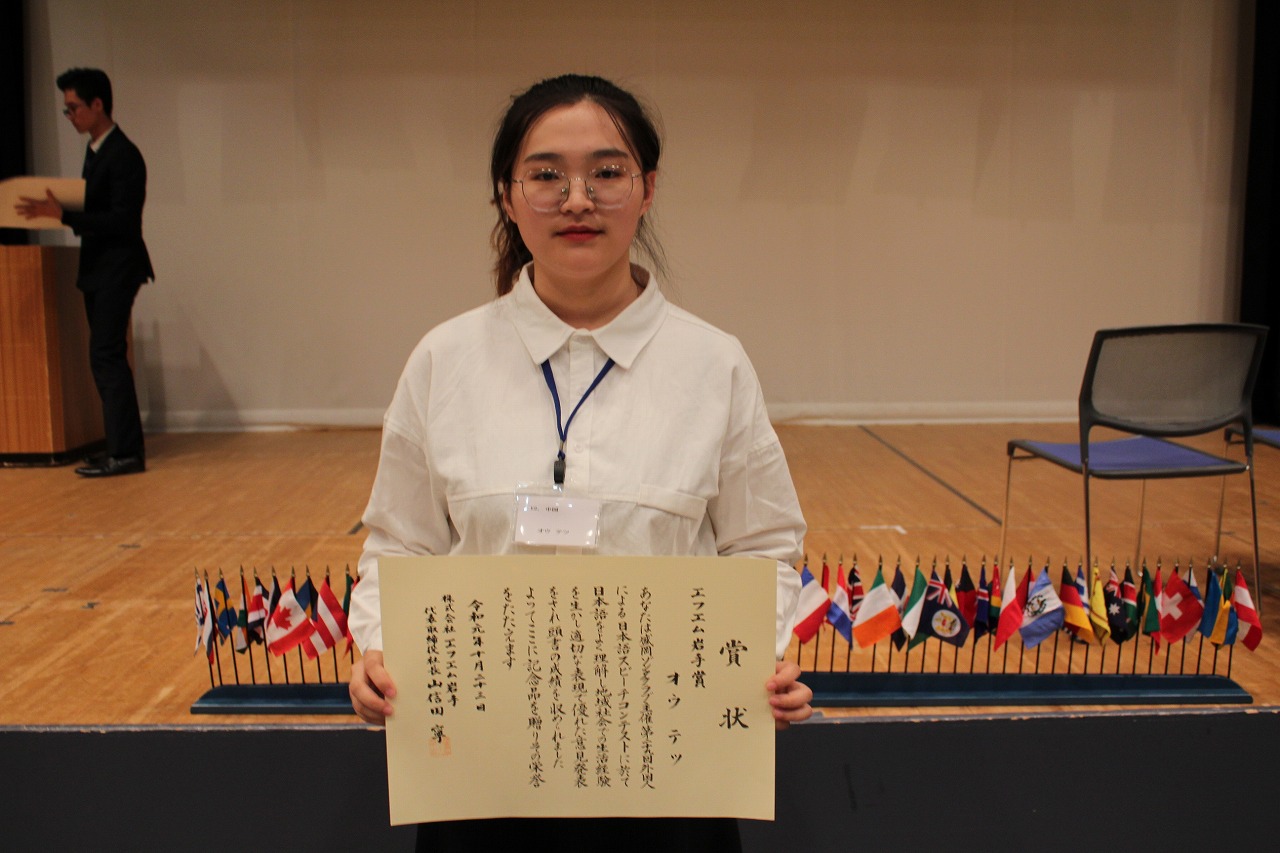 賞状
エフエム岩手賞
オウ テツ
あなたは盛岡ゾンタクラブ主催 外国人
による日本語スピーチコンテストに於て
日本語をよく理解し地域社会での生活経験
を生かし適切な表現で優れた意見発表
をされ顕著の成績を収められました
よってここに記念品を贈りその栄誉
をたたえます
令和元年十月二十二日
株式会社 エフエム岩手
代表取締役社長 山信田 寧
10. 中国
オウ テツ